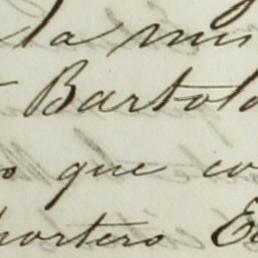 la mis
Bartolo
que co
portero